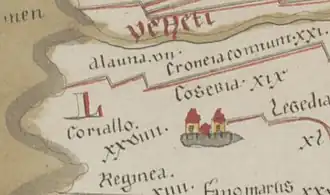 Veneti
nen
alauna. vii.
Croneiaconnum. XXI.
Cosedia. XIX
L
Legedia
Coriallo.
XXVIIII.
XL
Reginea.
XIIII.
Fanomartis